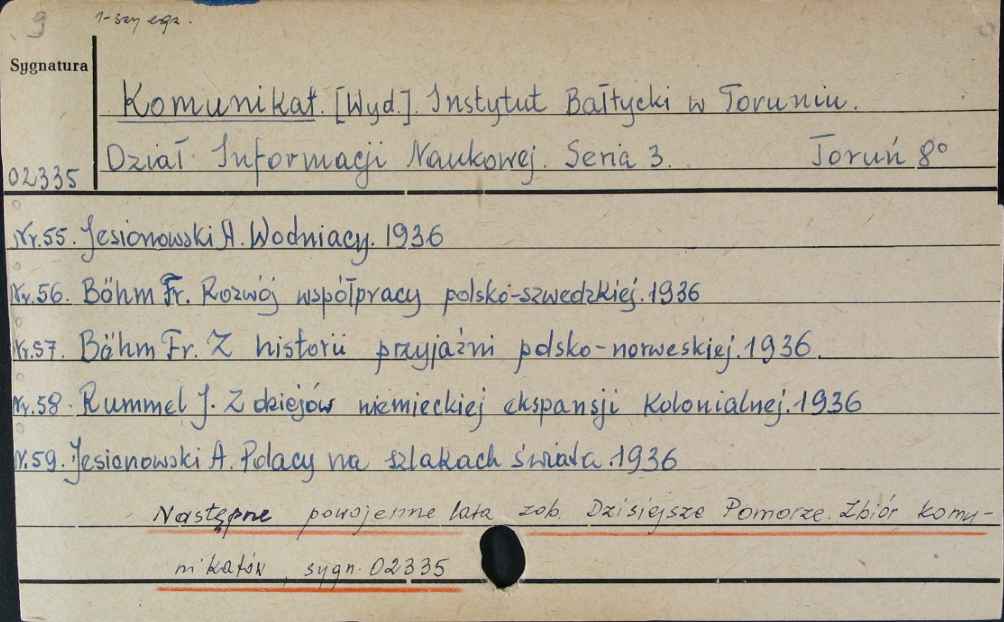 9 1-szy egz.
Sygnatura
Komunikat. [Wyd.]. Instytut Bałtycki w Toruniu.
02335 Dział Informacji Naukowej. Seria 3. Toruń 8°
Nr.55. Jesionowski A. Wodniacy. 1936
Nr.56. Böhm Fr. Rozwój współpracy polsko-szwedzkiej. 1936
Nr.57. Böhm Fr. Z historii przyjaźni polsko-norweskiej. 1936.
Nr.58. Rummel J. Z dziejów niemieckiej ekspansji kolonialnej. 1936
Nr.59. Jesionowski A. Polacy na szlakach świata. 1936
Następne powojenne lata zob. Dzisiejsze Pomorze. Zbiór komu-
nikatów, sygn. 02335